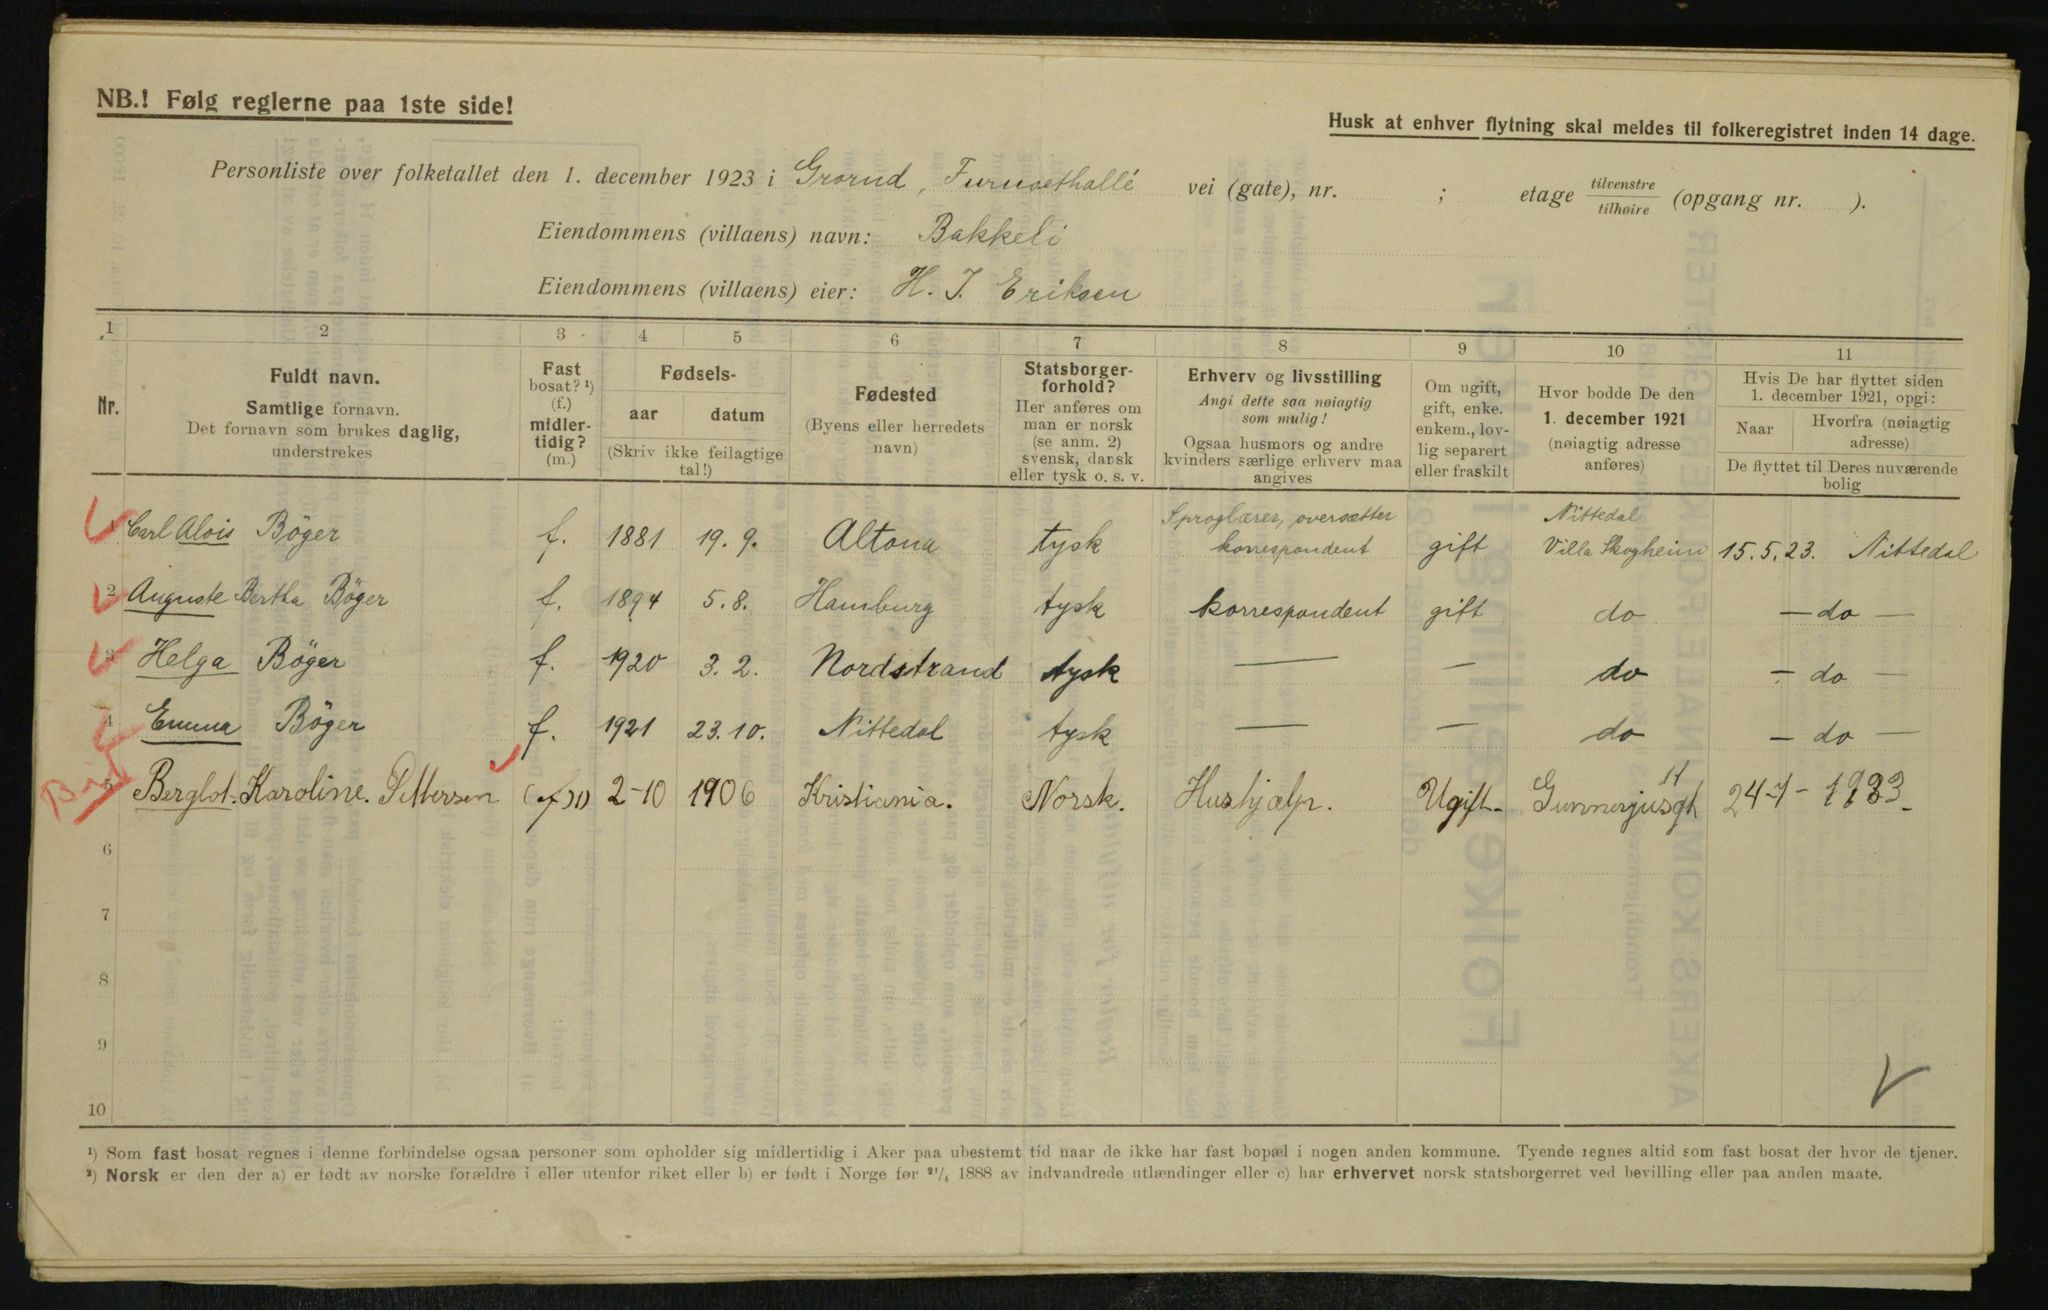 NB.! Følg reglerne paa 1ste side!
Husk at enhver flytning skal meldes til folkeregistret inden 14 dage.
Personliste over folketallet den 1. december 1923 i Grorud, Furusethallé vei (gate), nr. ; etage tilvenstre/tilhøire (opgang nr. ).
Eiendommens (villaens) navn: Bakkeli
Eiendommens (villaens) eier: H. J. Eriksen
1 2 3 4 5 6 7 8 9 10 11
Nr.
Fuldt navn.
Samtlige fornavn.
Det fornavn som brukes daglig,
understrekes
Fast
bosat? ¹)
(f.)
midler-
tidig?
(m.)
Fødsels-
aar datum
(Skriv ikke feilagtige
tal!)
Fødested
(Byens eller herredets
navn)
Statsborger-
forhold?
Her anføres om
man er norsk
(se anm. 2)
svensk, dansk
eller tysk o. s. v.
Erhverv og livsstilling
Angi dette saa nøiagtig
som mulig!
Ogsaa husmors og andre
kvinders særlige erhverv maa
angives
Om ugift,
gift, enke.
enkem., lov-
lig separert
eller fraskilt
Hvor bodde De den
1. december 1921
(nøiagtig adresse
anføres)
Hvis De har flyttet siden
1. december 1921, opgi:
Naar Hvorfra (nøiagtig
adresse)
De flyttet til Deres nuværende
bolig
Sproglærer, oversætter Nittedal
1 Carl Alois Böger f. 1881 19. 9. Altona tysk korrespondent gift Villa Skogheim 15. 5. 23. Nittedal
2 Auguste Bertha Böger f. 1894 5. 8. Hamburg tysk korrespondent gift do — do —
3 Helga Böger f. 1920 3. 2. Nordstrand tysk — — do — do —
4 Emma Böger f. 1921 23. 10. Nittedal tysk — — do — do —
5 Berglot. Karoline. Pettersen (f)1) 2-10 1906 Kristiania. Norsk. Hushjælp. Ugift. Gunnerjusgt 11 24-7-1923
6
7
8
9
10
¹) Som fast bosat regnes i denne forbindelse ogsaa personer som opholder sig midlertidig i Aker paa ubestemt tid naar de ikke har fast bopæl i nogen anden kommune. Tyende regnes altid som fast bosat der hvor de tjener.
²) Norsk er den der a) er født av norske forældre i eller utenfor riket eller b) er født i Norge før ²¹/₄ 1888 av indvandrede utlændinger eller c) har erhvervet norsk statsborgerret ved bevilling eller paa anden maate.